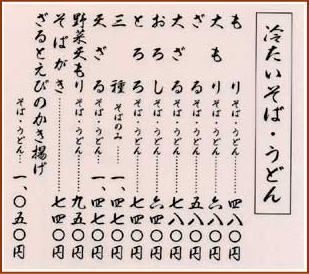 冷たいそば・うどん
もり そば・うどん……四八〇円
大もり そば・うどん……六八〇円
ざる そば・うどん……五八〇円
大ざる そば・うどん……七八〇円
おろし そば・うどん……六四〇円
とろろ そば・うどん……七四〇円
三種 そばのみ……一、四七〇円
天ざる そば・うどん…一、四七〇円
野菜天もり そば・うどん……九五〇円
そばがき……………七四〇円
ざるとえびのかき揚げ
そば・うどん…一、〇五〇円